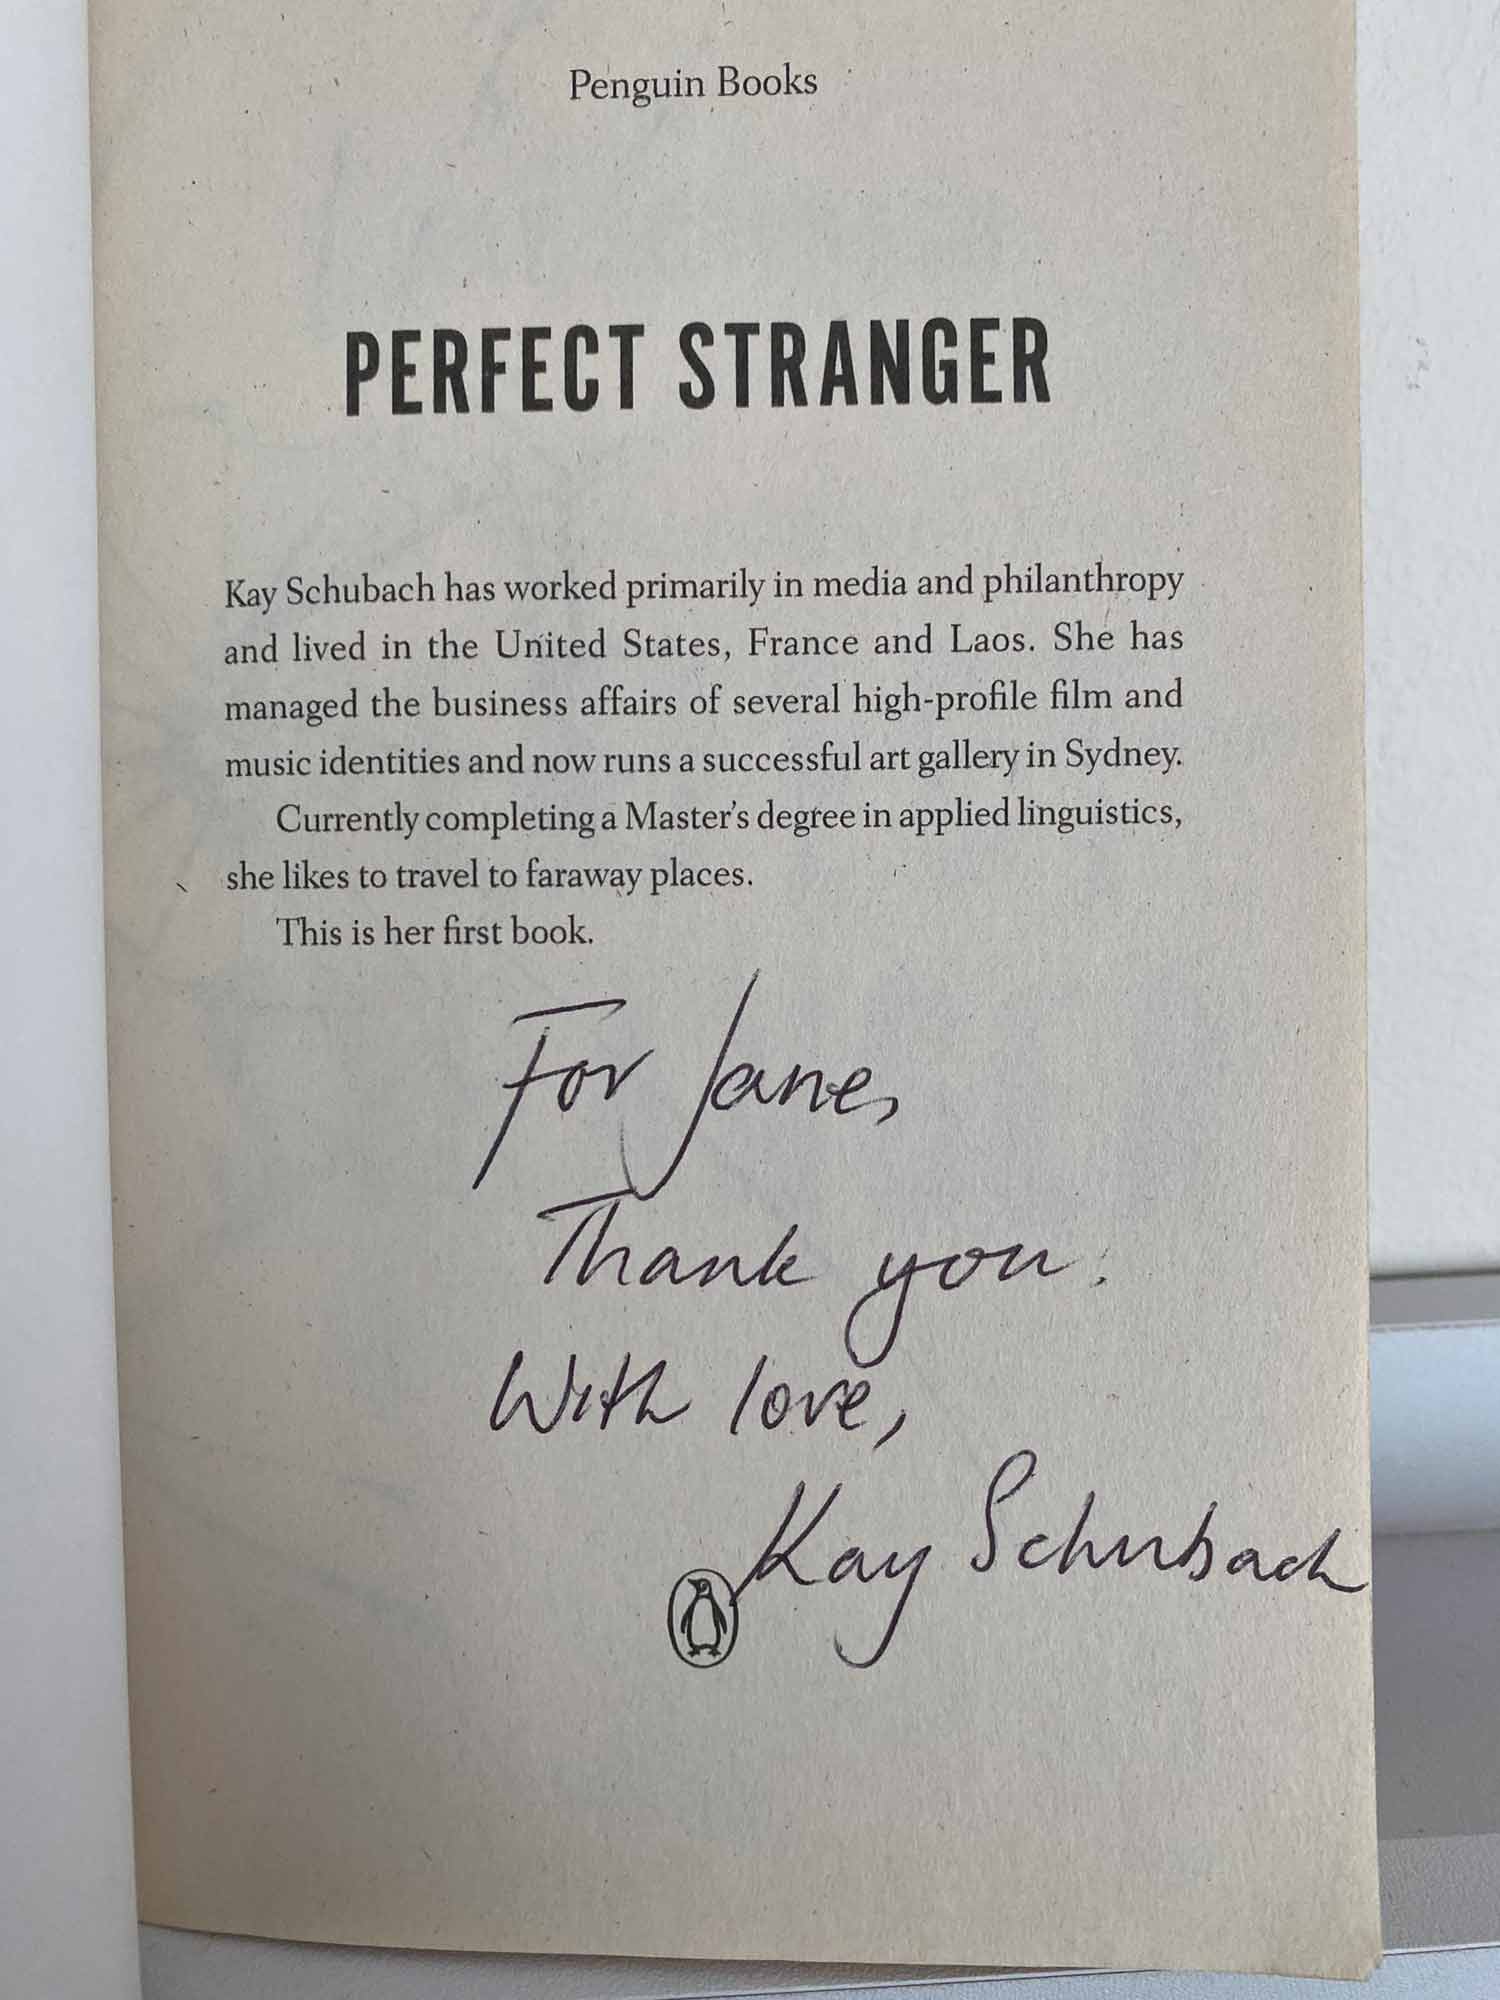 Penguin Books
PERFECT STRANGER
Kay Schubach has worked primarily in media and philanthropy
and lived in the United States, France and Laos. She has
managed the business affairs of several high-profile film and
music identities and now runs a successful art gallery in Sydney.
Currently completing a Master's degree in applied linguistics,
she likes to travel to faraway places.
This is her first book.
For Jane,
Thank you!
With love,
Kay Schubach